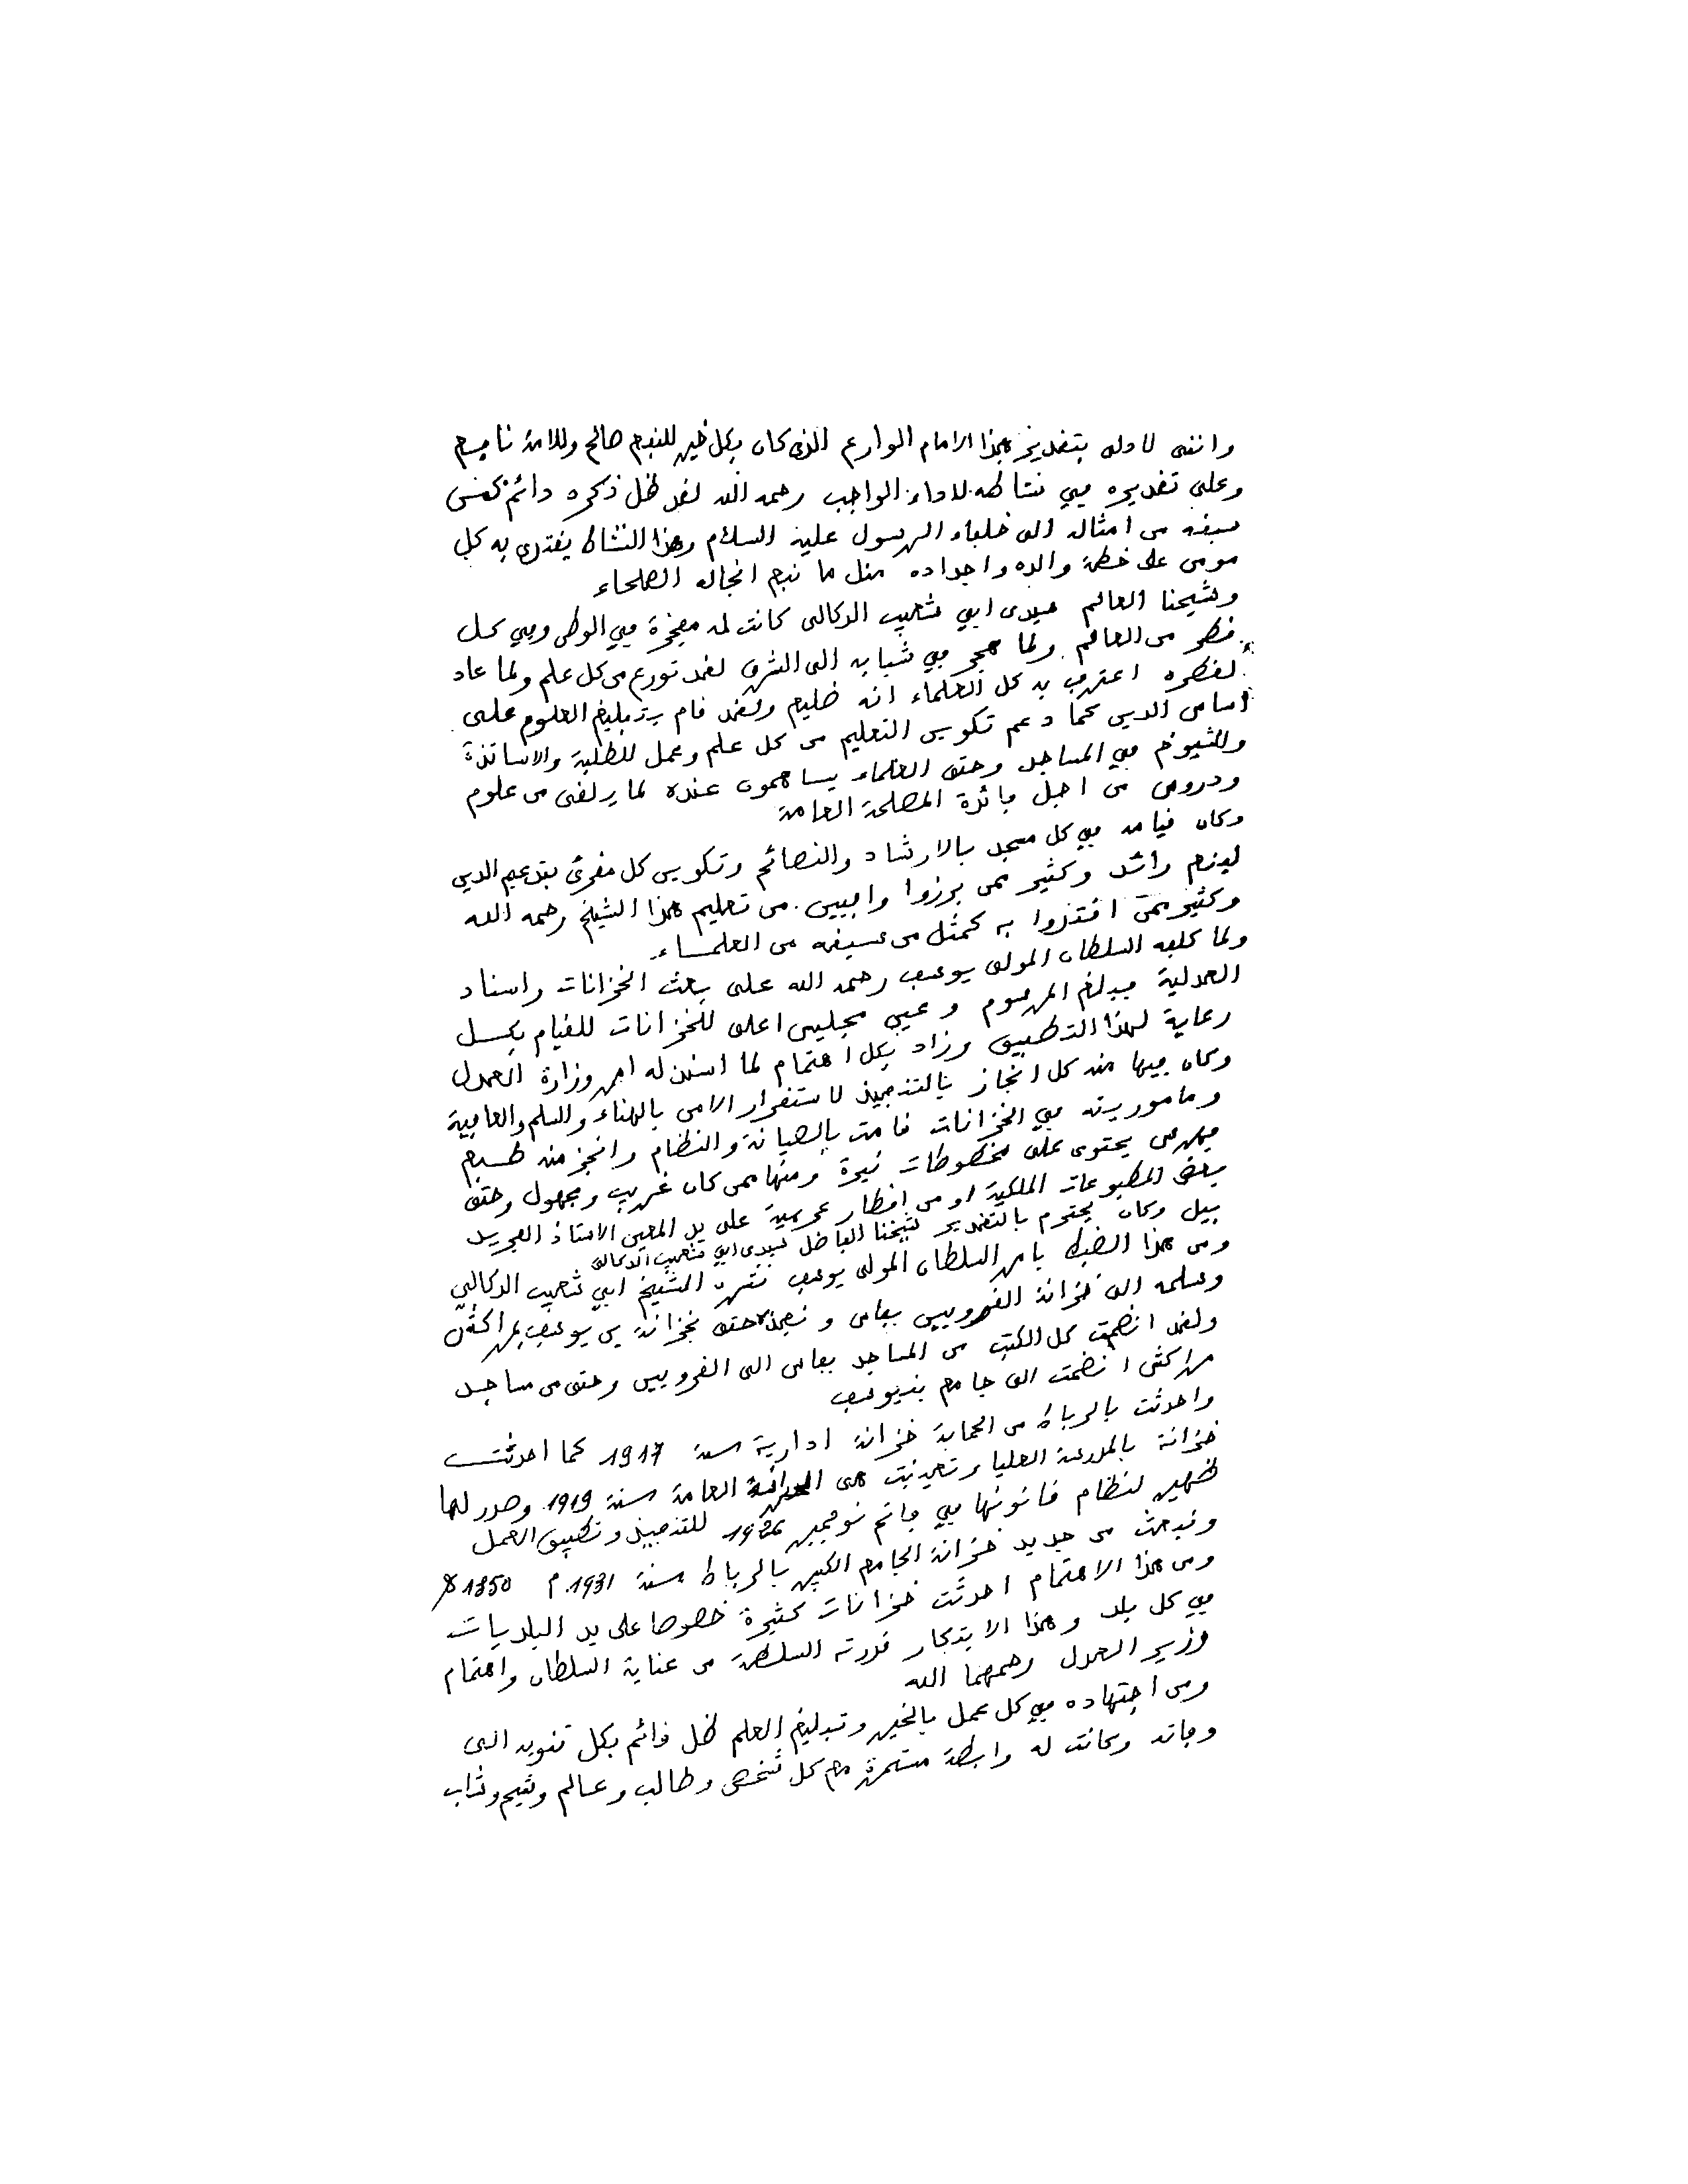 واننى لادلى بتقدير هذا الامام الوارع الذى كان بكل خير للنبع صالح وللامة نافع
وعلى تقديره في نشاطه لاداء الواجب رحمه الله لقد ظل ذكره دائم كمن
سبقه من امثاله الى خلفاء الرسول عليه السلام وهذا النشاط يقتدى به كل
مومن على خطة والده واجداده مثل ما نبع انجاله الصلحاء
وشيخنا العالم سيدى ابي شعيب الدكالى كانت له معجزة في الوطن وفي كل
قطر من العالم ولما هجر في شبابه الى الشرق لقد تورع من كل علم ولما عاد
لقطره اعترف به كل العلماء انه ضليع ولقد قام بتبليغ العلوم على
اساس الدين كما دعم تكوين التعليم من كل علم وعمل للطلبة والاساتذة
والشيوخ في المساجد وحتى العلماء يساهمون عنده لما يلقى من علوم
ودروس من اجل فائدة المصلحة العامة
وكان قيامه في كل مسجد بالارشاد والنصائح وتكوين كل مقرئ بتدعيم الدين
لينع رائد وكثير ممن برزوا وافيين من تعليم هذا الشيخ رحمه الله
وكثير ممن اقتدوا به كمثل من سبقه من العلماء
ولما كلفه السلطان المولى يوسف رحمه الله على بعث الخزانات واسناد
العدلية فبلغ المرسوم وعين مجلس اعلى للخزانات للقيام بكل
رعاية لهذا التطبيق وزاد بكل اهتمام لما اسند له امر وزارة العدل
وكان فيها منه كل انجاز بالتنفيذ لاستقرار الامن بالهناء والسلم والعافية
ومامورية في الخزانات قامت بالصيانة والنظام وانجز منه طبع
فهرس يحتوى على مخطوطات نيرة ومنها ممن كان غريب ومجهول وحتى
بعض المطبوعات الملكية او من اقطار عربية على يد المعين الاستاذ الفريد
بيل وكان يحترم بالتقدير شيخنا الفاضل سيدى ابي شعيب الدكالى
ومن هذا الضبط بامر السلطان المولى يوسف نشره الشيخ ابي شعيب الدكالي
وسلمه الى خزانة القرويين بفاس و نفذه حتى بخزانة بن يوسف بمراكش
ولقد انضمت كل الكتب من المساجد بفاس الى القرويين وحتى من مساجد
مراكش انضمت الى جامع بنيوسف
واحدثت بالرباط من الحماية خزانة ادارية سنة 1917 كما احدثت
خزانة بالمدرسة العليا وتعينت هى الخزانة العامة سنة 1919 وصدر لها
ظهير لنظام قانونها في فاتح نوفمبر 1926 للتنفيذ وتطبيق العمل
ونبعث من جديد خزانة الجامع الكبير بالرباط سنة 1931 م 1350 ھ
ومن هذا الاهتمام احدثت خزانات كثيرة خصوصا على يد البلديات
في كل بلد وهذا الابتكار قدرته السلطة من عناية السلطان واهتمام
وزير العدل رحمهما الله
ومن اجتهاده في كل عمل بالخير وتبليغ العلم ظل قائم بكل تنويه الى
وفاته وكانت له رابطة مستمرة مع كل شخص وطالب وعالم وشيخ وشاب